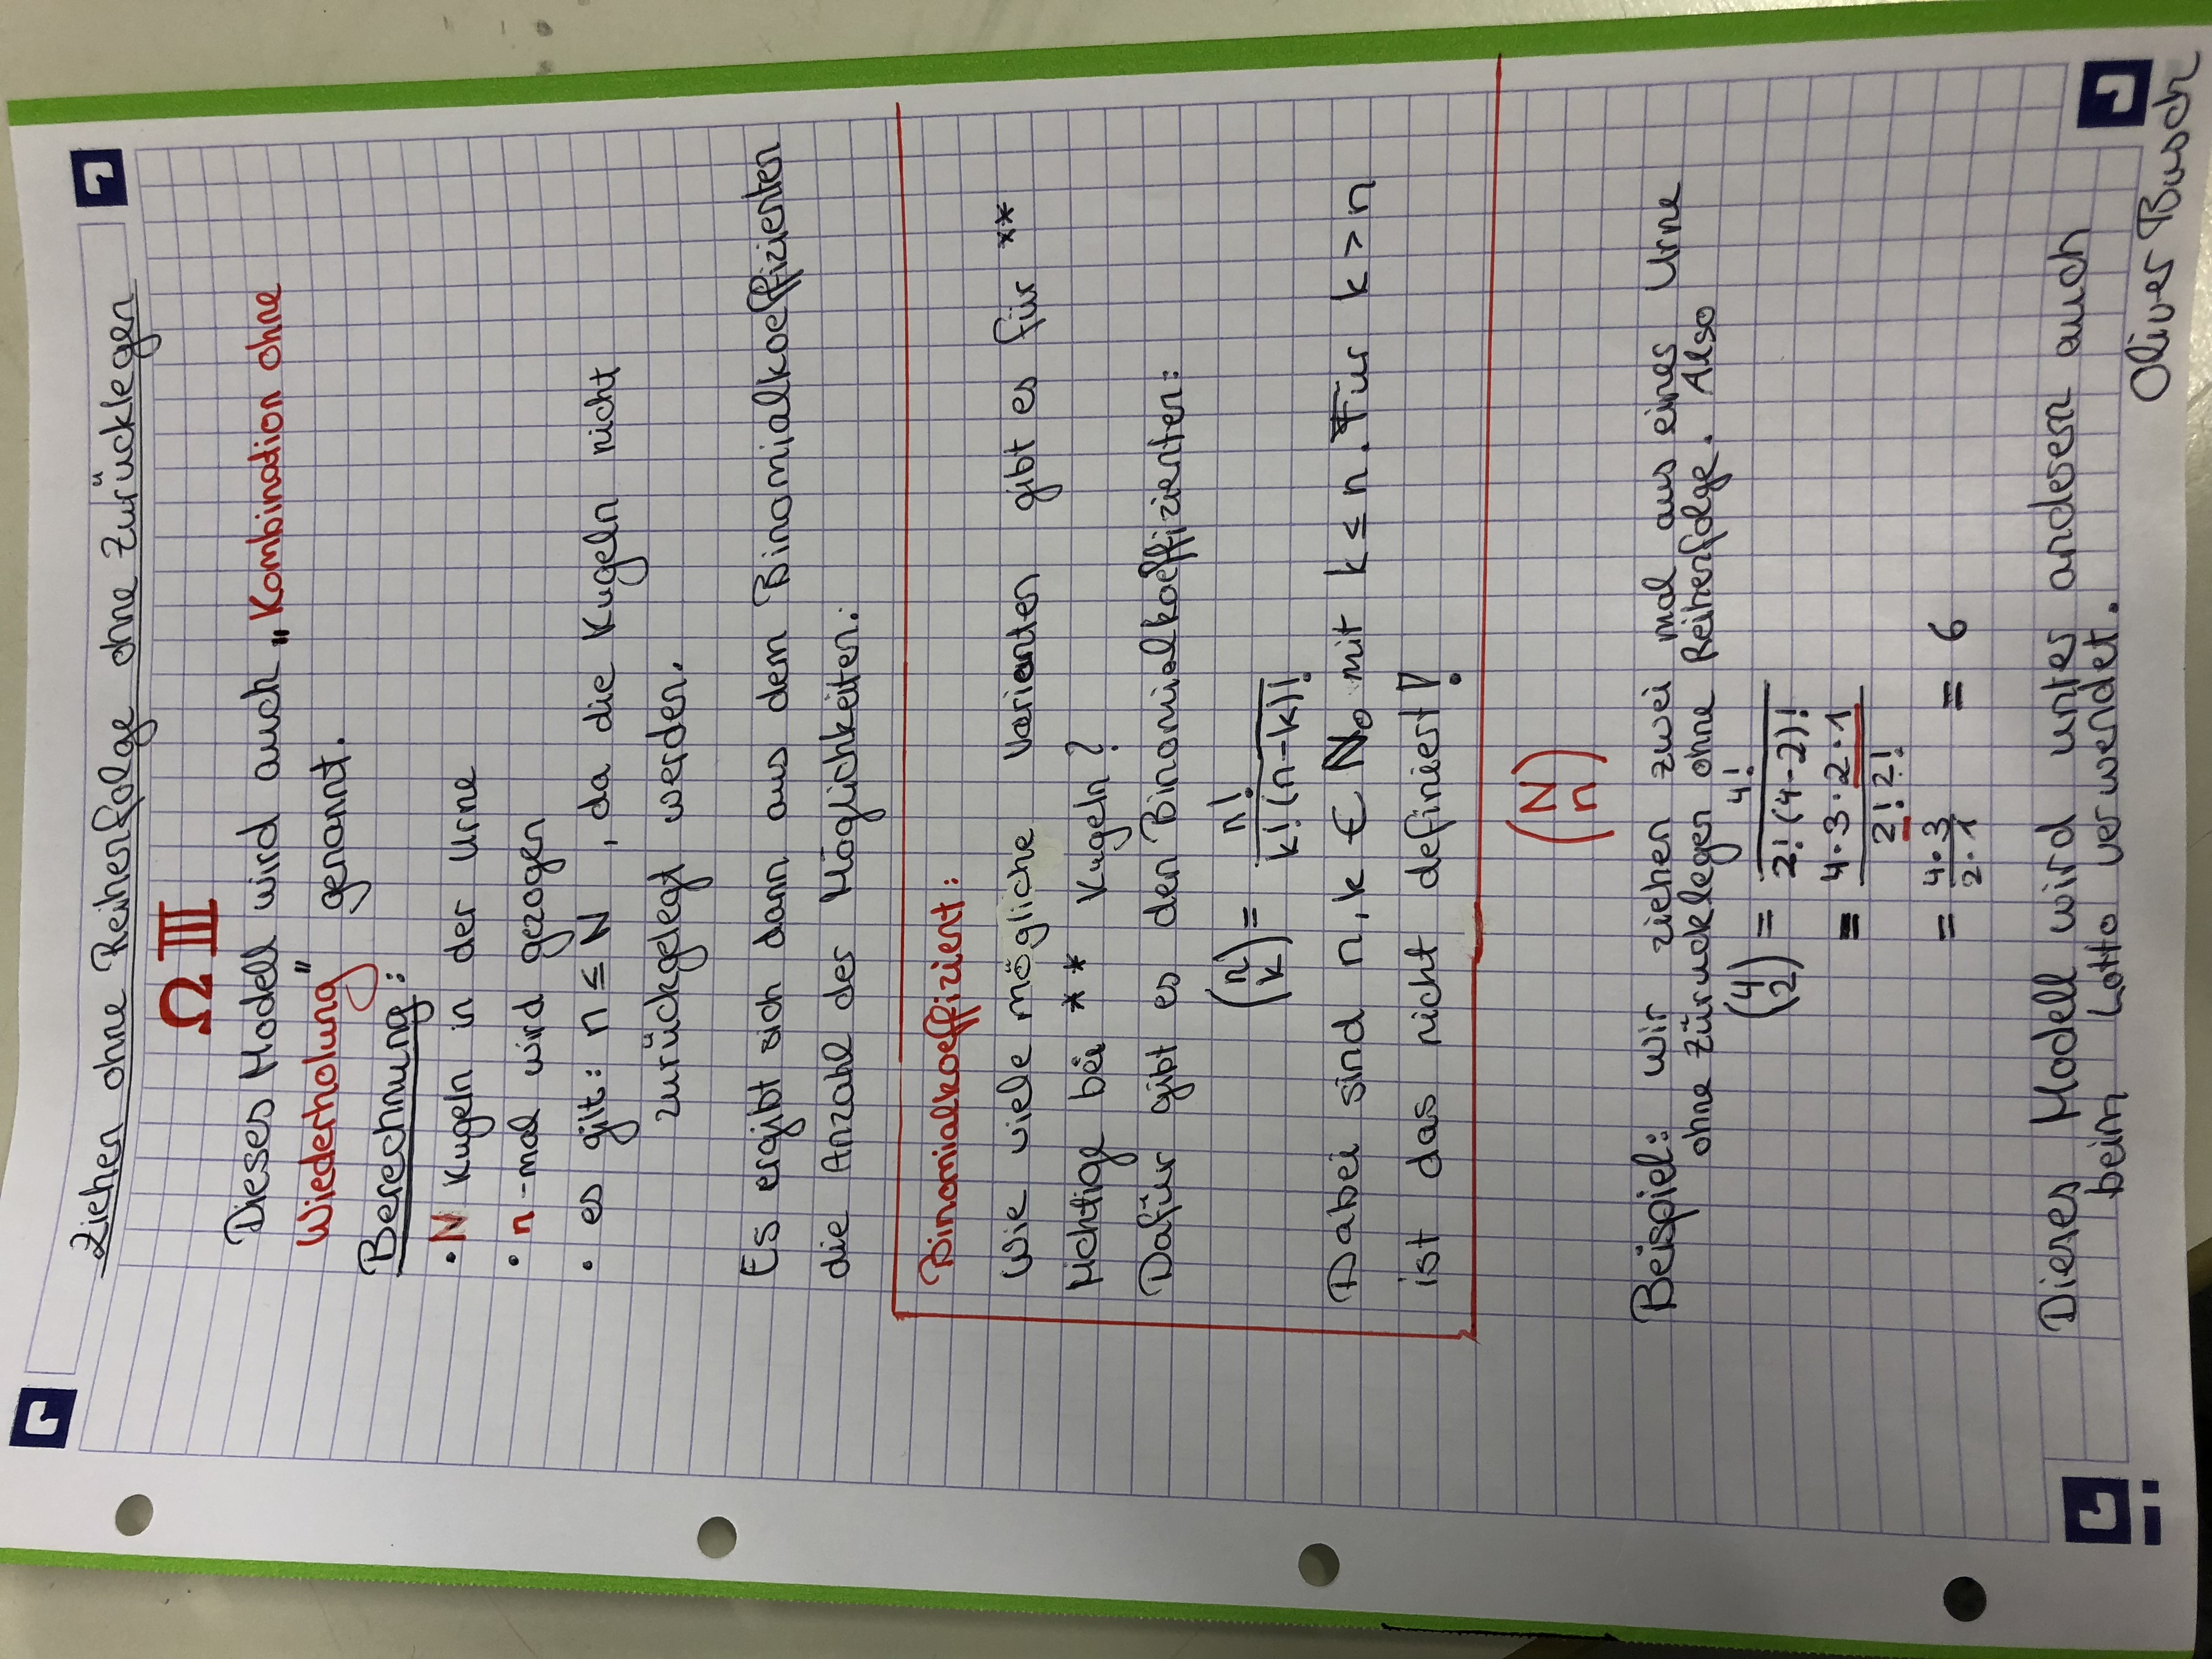 Ziehen ohne Reihenfolge ohne Zurücklegen
Ω III
Dieses Modell wird auch „Kombination ohne
Wiederholung" genannt.
Berechnung:
• N Kugeln in der Urne
• n-mal wird gezogen
• es gilt: n ≤ N, da die Kugeln nicht
zurückgelegt werden.
Es ergibt sich dann aus dem Binomialkoeffizienten
die Anzahl der Möglichkeiten:
Binomialkoeffizient:
Wie viele mögliche Varianten gibt es für **
richtige bei ** Kugeln?
Dafür gibt es den Binomialkoeffizienten:
(n k) = n! / k!(n-k)!
Dabei sind n, k ∈ ℕ₀ mit k ≤ n. Für k > n
ist das nicht definiert!
(N n)
Beispiel: wir ziehen zwei mal aus einer Urne
ohne zurücklegen ohne Reihenfolge. Also
(4 2) = 4! / 2!(4-2)!
= 4·3·2·1 / 2! 2!
= 4·3 / 2·1 = 6
Dieses Modell wird unter anderem auch
beim Lotto verwendet.
Oliver Busch